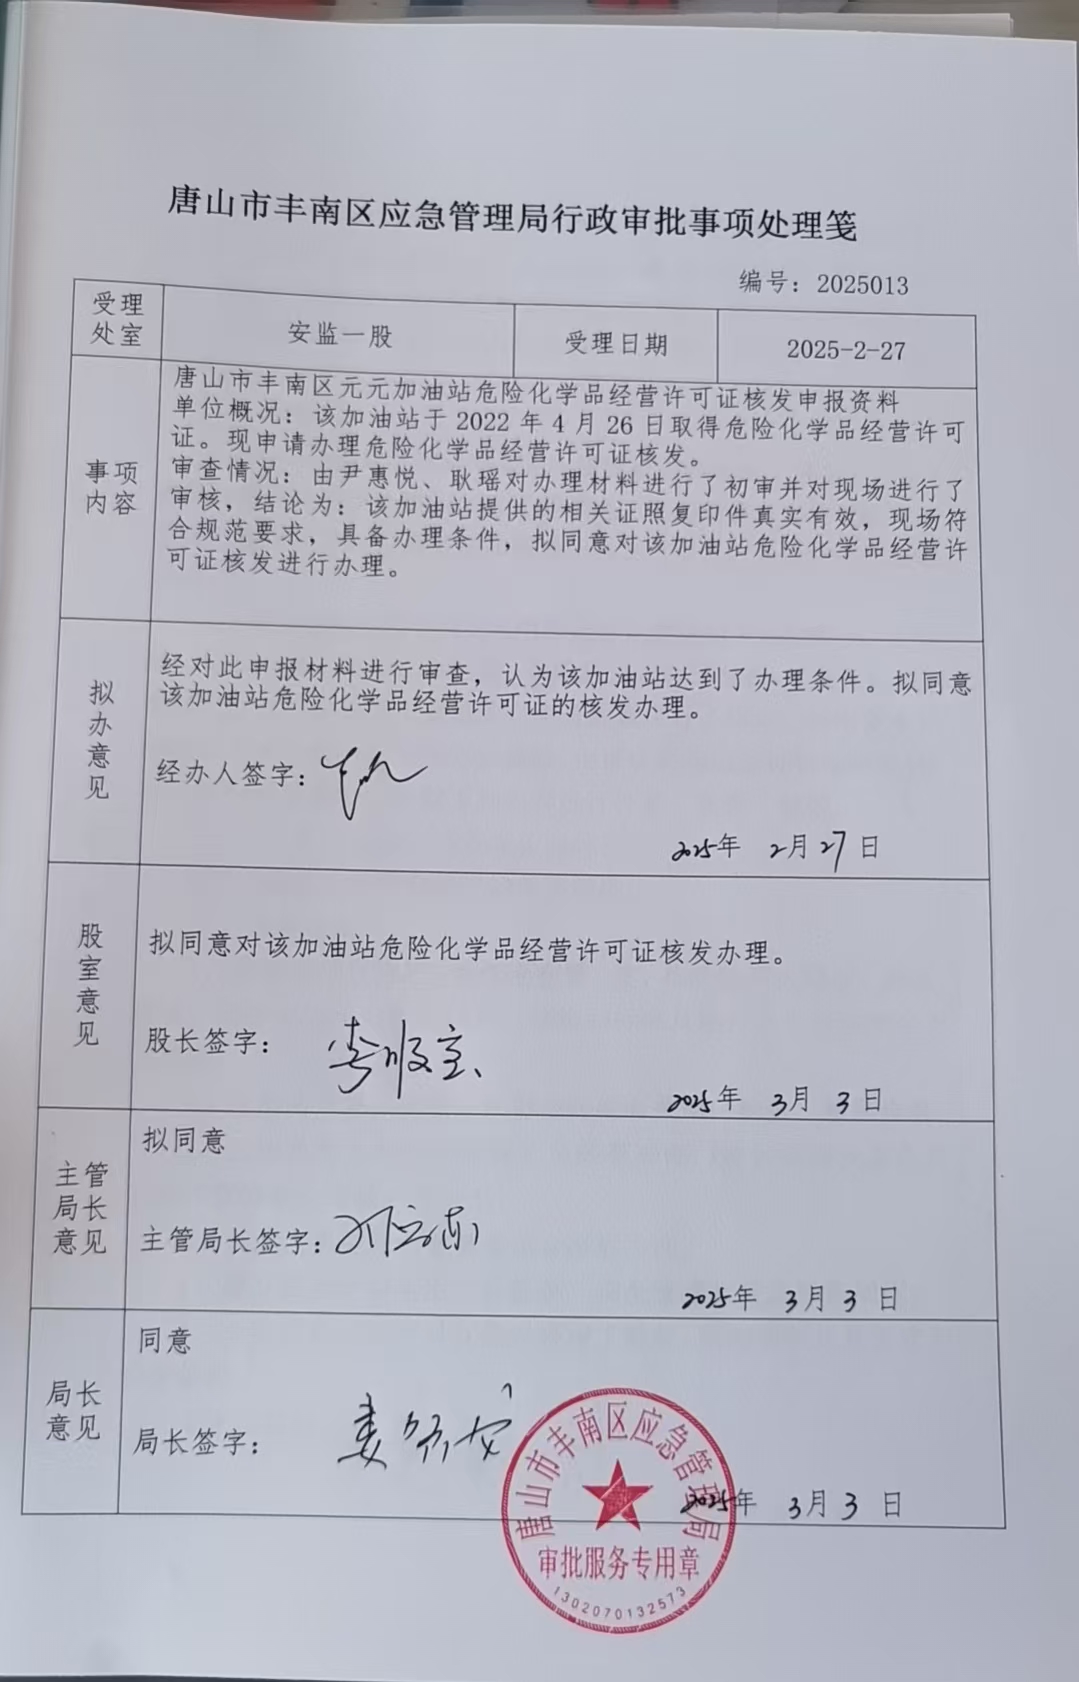 唐山市丰南区应急管理局行政审批事项处理笺
编号：2025013
受理
处室
安监一股
受理日期
2025-2-27
事项
内容
唐山市丰南区元元加油站危险化学品经营许可证核发申报资料
单位概况：该加油站于 2022 年 4 月 26 日取得危险化学品经营许可
证。现申请办理危险化学品经营许可证核发。
审查情况：由尹惠悦、耿瑶对办理材料进行了初审并对现场进行了
审核，结论为：该加油站提供的相关证照复印件真实有效，现场符
合规范要求，具备办理条件，拟同意对该加油站危险化学品经营许
可证核发进行办理。
拟
办
意
见
经对此申报材料进行审查，认为该加油站达到了办理条件。拟同意
该加油站危险化学品经营许可证的核发办理。
经办人签字：
2025年 2月27日
股
室
意
见
拟同意对该加油站危险化学品经营许可证核发办理。
股长签字：
2025年 3月 3日
主管
局长
意见
拟同意
主管局长签字：
2025年 3月 3日
局长
意见
同意
局长签字：
2025年 3月 3日
唐山市丰南区应急管理局
审批服务专用章
1302070132573